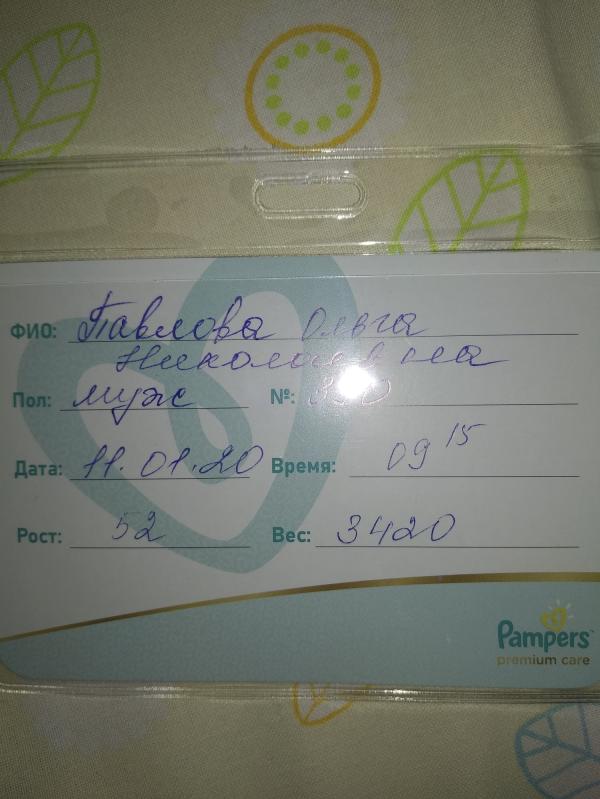 ФИО: Павлова Ольга
Николаевна
Пол: муж №:
Дата: 11.01.20 Время: 09 15
Рост: 52 Вес: 3420
Pampers
premium care